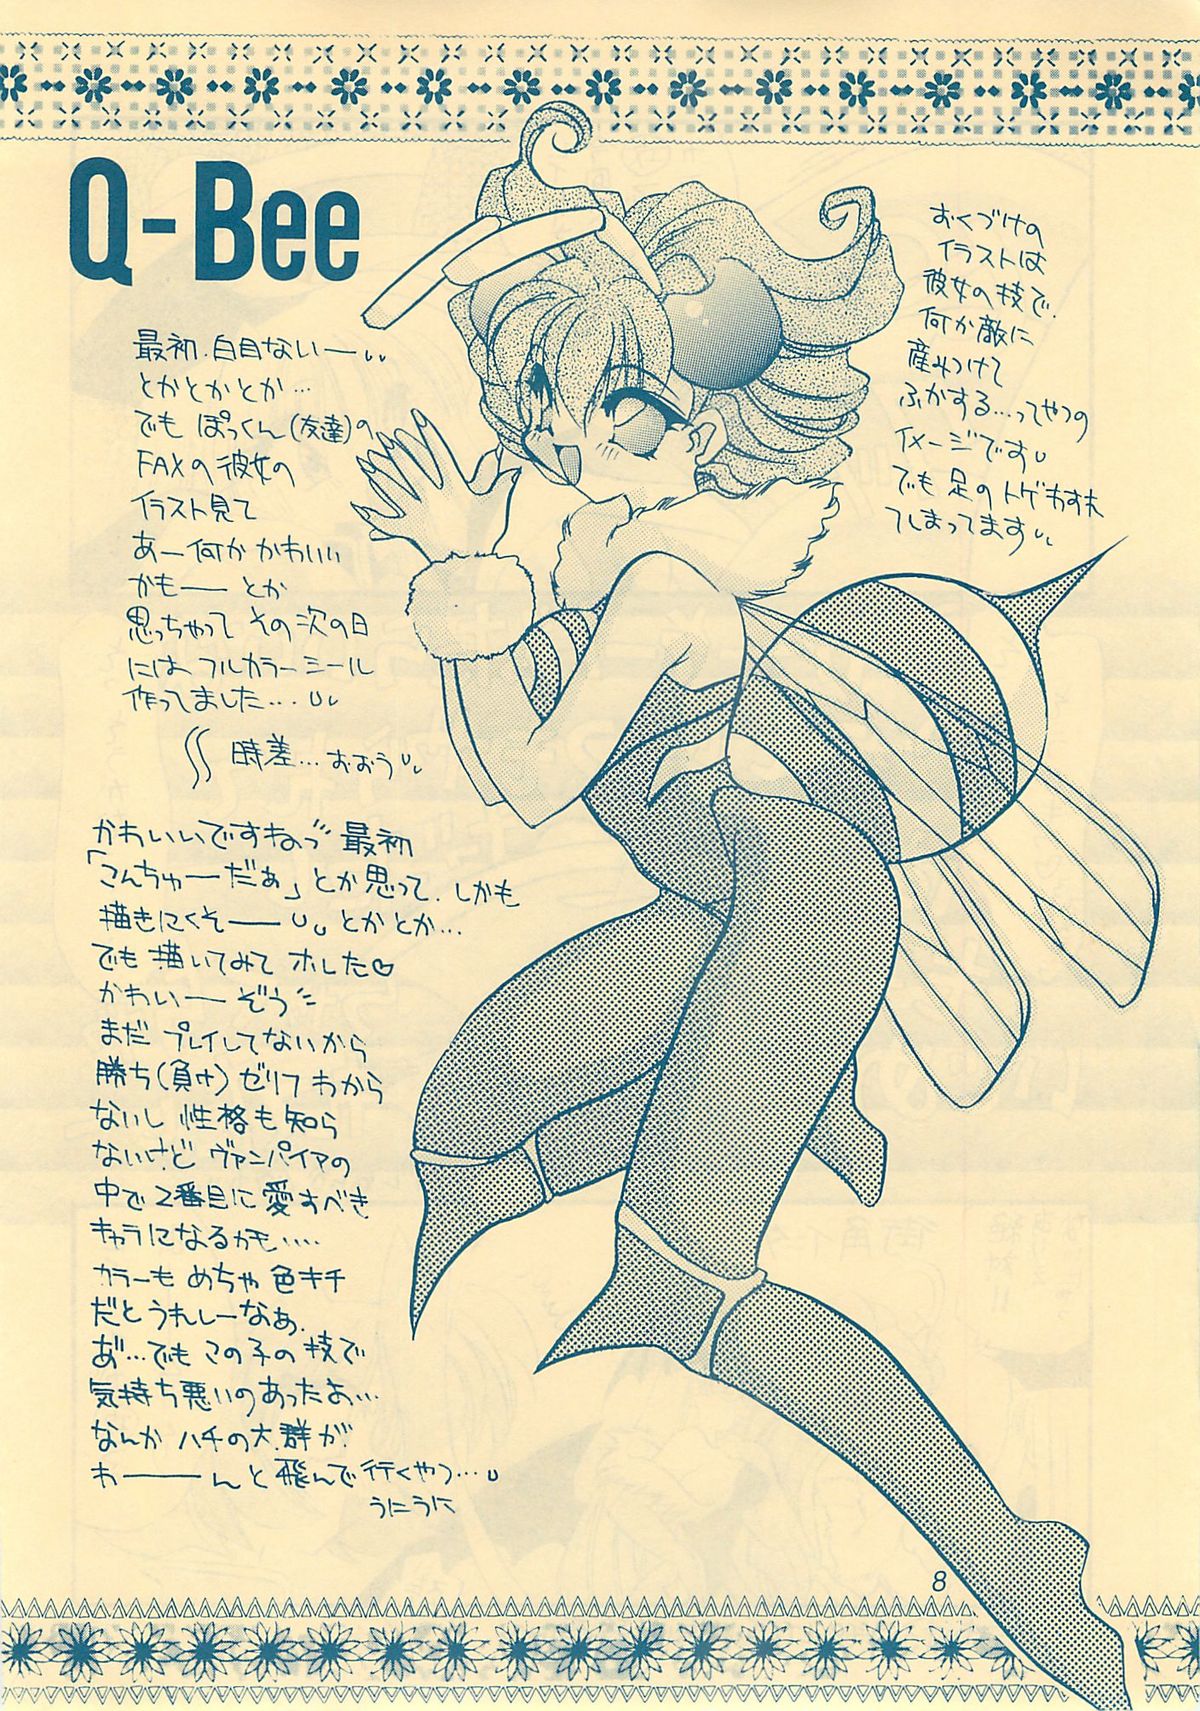 Q-Bee
最初、白目ないー
とかとかとか…
でも ぽっくん(友達)の
FAXの彼女の
イラスト見て
あー何か かわいい
かもー とか
思っちゃって その次の日
には フルカラーシール
作ってました…
時差…おおう
かわいいですねっ 最初
「こんちゅーだぁ」とか思って、しかも
描きにくそー とかとか…
でも 描いてみて ホレた♡
かわいーぞう
まだ プレイしてないから
勝ち(負け)ゼリフ わから
ないし 性格も知ら
ないけど ヴァンパイアの
中で 2番目に 愛すべき
キャラになるかも……
カラーも めちゃ 色キチ
だと うれしーなぁ、
あ゛…でも この子の技で
気持ち悪いのあったよ…
なんか ハチの大群が
わーーんと 飛んで 行くやつ…
うにうに
おくづけの
イラストは
彼女の技で、
何か敵に
産みつけて
ふかする…ってやつの
イメージです
でも 足の トゲ わすれ
てしまってます
8